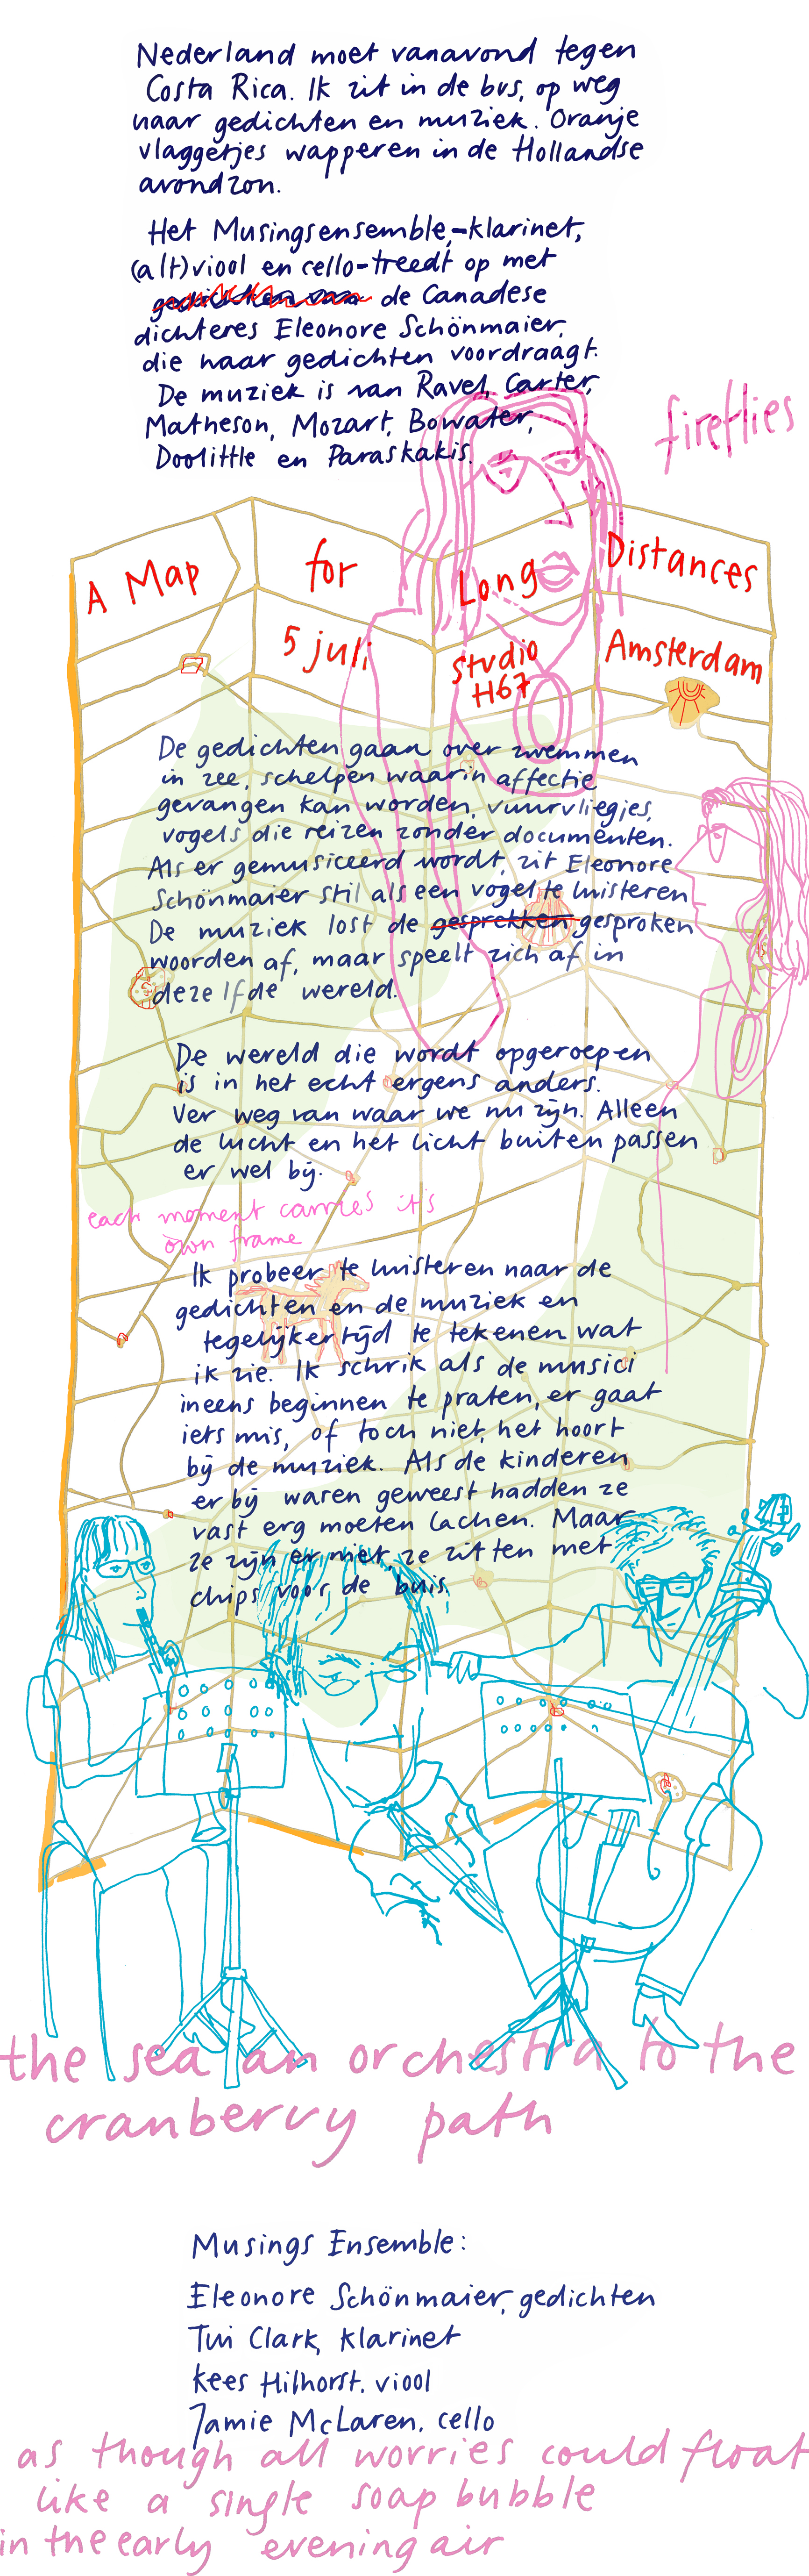 Nederland moet vanavond tegen
Costa Rica. Ik zit in de bus, op weg
naar gedichten en muziek. Oranje
vlaggetjes wapperen in de Hollandse
avondzon.
Het Musingsensemble,-klarinet,
(alt)viool en cello-treedt op met
gedichten van de Canadese
dichteres Eleonore Schönmaier,
die haar gedichten voordraagt.
De muziek is van Ravel, Carter,
Matheson, Mozart, Bowater,
Doolittle en Paraskakis.
fireflies
A Map for Long Distances
5 juli Studio Amsterdam
H67
De gedichten gaan over zwemmen
in zee, schelpen waarin affectie
gevangen kan worden, vuurvliegjes,
vogels die reizen zonder documenten.
Als er gemusiceerd wordt, zit Eleonore
Schönmaier stil als een vogel te luisteren
De muziek lost de gesprekken gesproken
woorden af, maar speelt zich af in
dezelfde wereld.
De wereld die wordt opgeroepen
is in het echt ergens anders.
Ver weg van waar we nu zijn. Alleen
de lucht en het licht buiten passen
er wel bij.
each moment carries it's
own frame
Ik probeer te luisteren naar de
gedichten en de muziek en
tegelijkertijd te tekenen wat
ik zie. Ik schrik als de musici
ineens beginnen te praten, er gaat
iets mis, of toch niet, het hoort
bij de muziek. Als de kinderen
er bij waren geweest hadden ze
vast erg moeten lachen. Maar
ze zijn er niet, ze zitten met
chips voor de buis.
the sea an orchestra to the
cranberry path
Musings Ensemble:
Eleonore Schönmaier, gedichten
Tui Clark, klarinet
Kees Hilhorst, viool
Jamie McLaren, cello
as though all worries could float
like a single soap bubble
in the early evening air